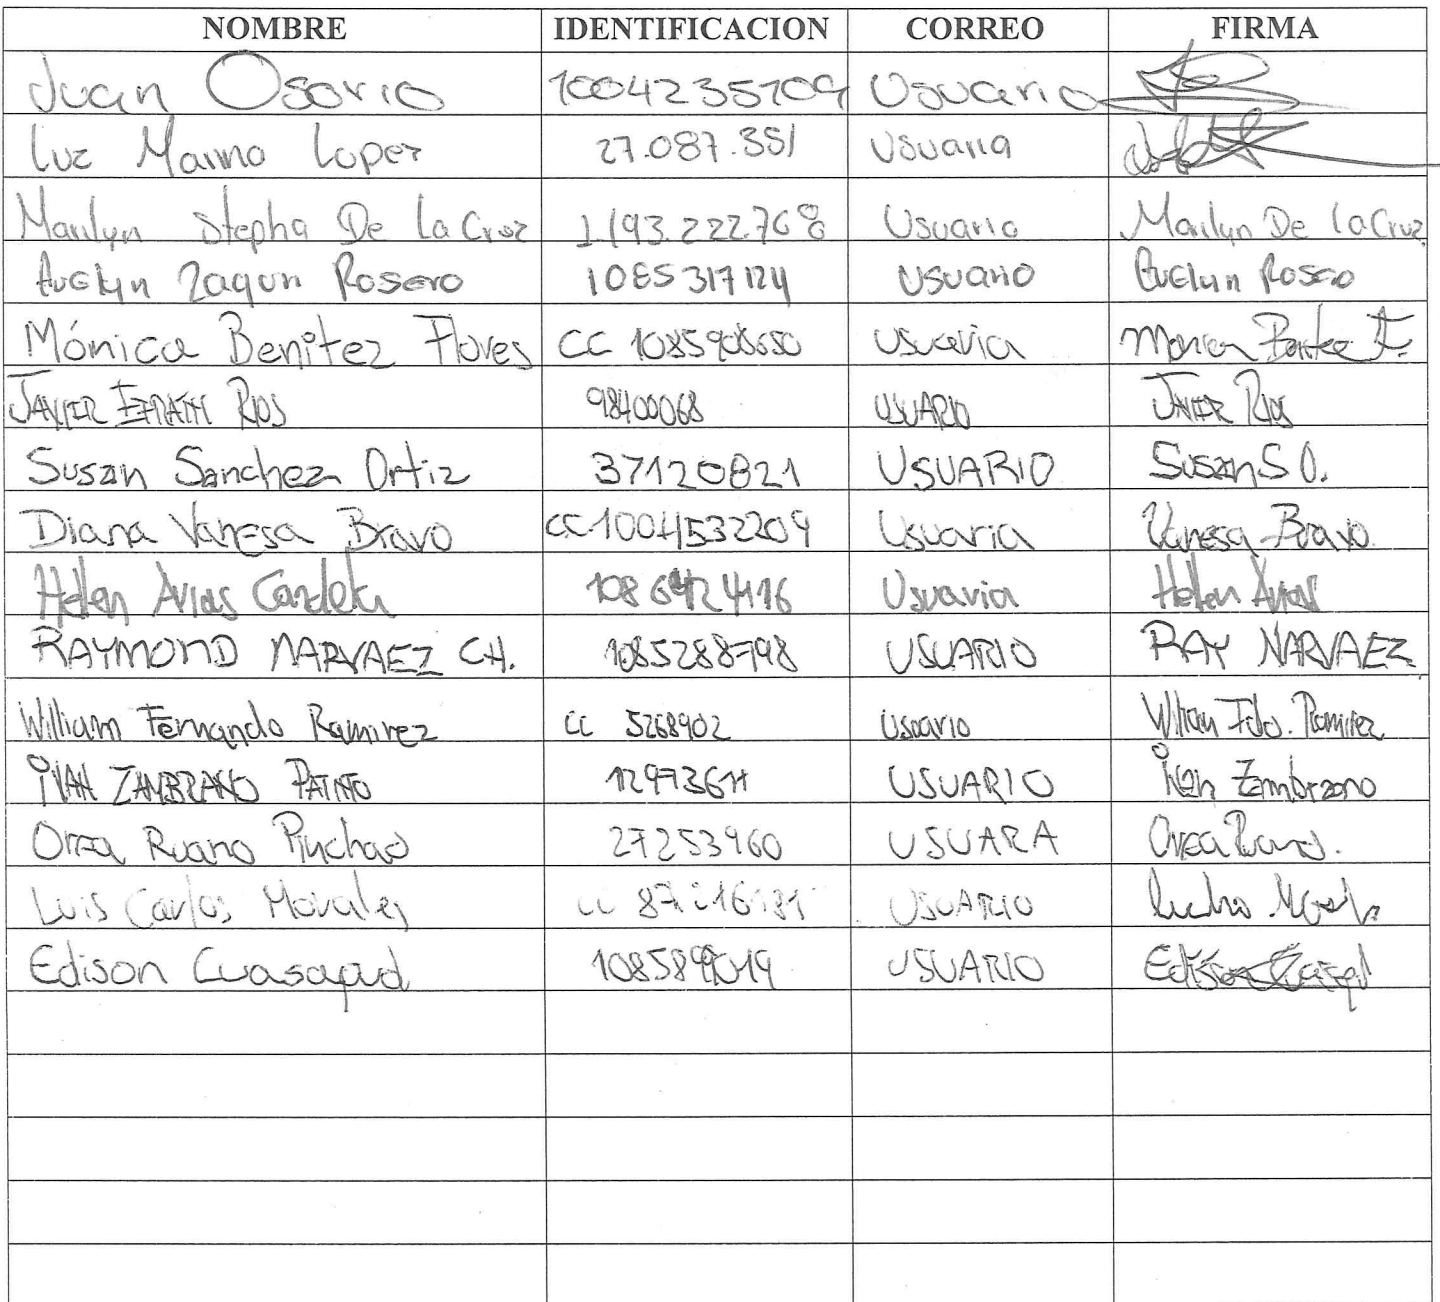 NOMBRE IDENTIFICACION CORREO FIRMA
Juan Osorio 1004235709 Usuario
Luz Marina Lopez 27.087.351 Usuaria
Marilyn Stepha De La Cruz 1.193.222.768 Usuario Marilyn De La Cruz
Evelyn Rosero 1085317124 Usuario Evelyn Rosero
Mónica Benitez Flores CC 1085908650 Usuaria
JAVIER RIOS 98400068 USUARIO JAVIER RIOS
Susan Sanchez Ortiz 37120821 USUARIO Susan S O.
Diana Vanesa Bravo CC 1004532209 Usuaria Vanesa Bravo
Helen Arias Usuaria Helen Arias
RAYMOND NARVAEZ CH. 1085288798 USUARIO RAY NARVAEZ
William Fernando Ramirez CC 5268902 Usuario Willian Fdo. Ramirez
IVAN ZAMBRANO PATIÑO USUARIO Ivan Zambrano
Ruano Piuchao 27253960 USUARA
Luis Carlos Morales CC USUARIO
Edison Cuasapud USUARIO Edison